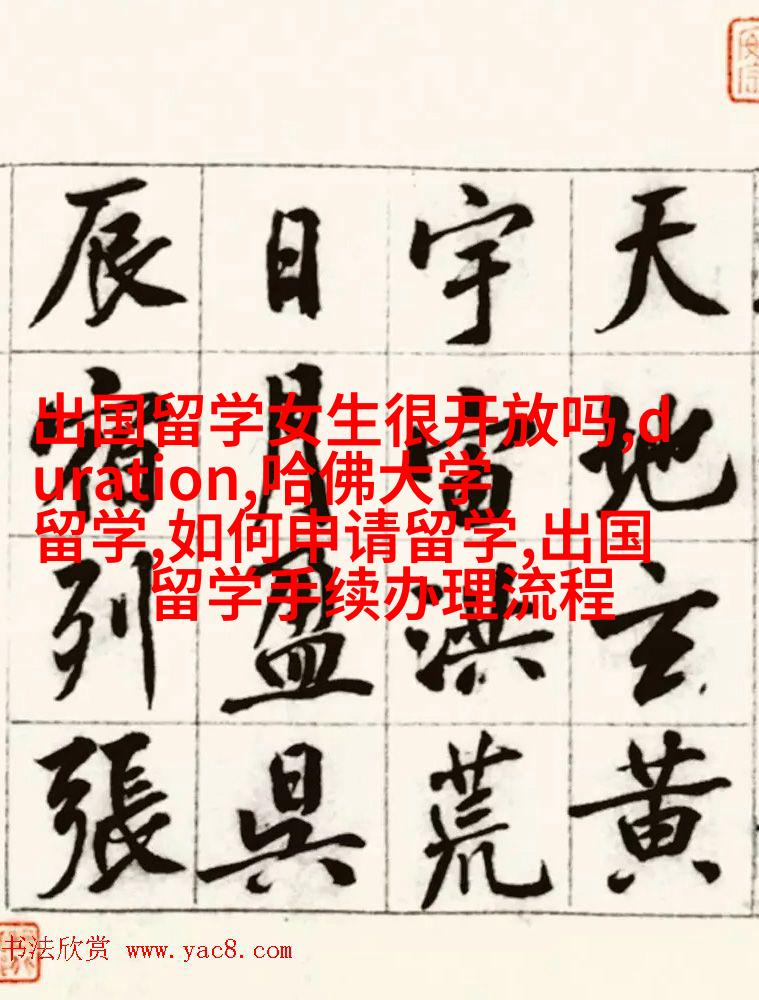 天地玄黄
宇宙洪荒
日月盈昃
辰宿列張
出国留学女生很开放吗,d
uration,哈佛大学
留学,如何申请留学,出国
留学手续办理流程
书法欣赏 www.yac8.com